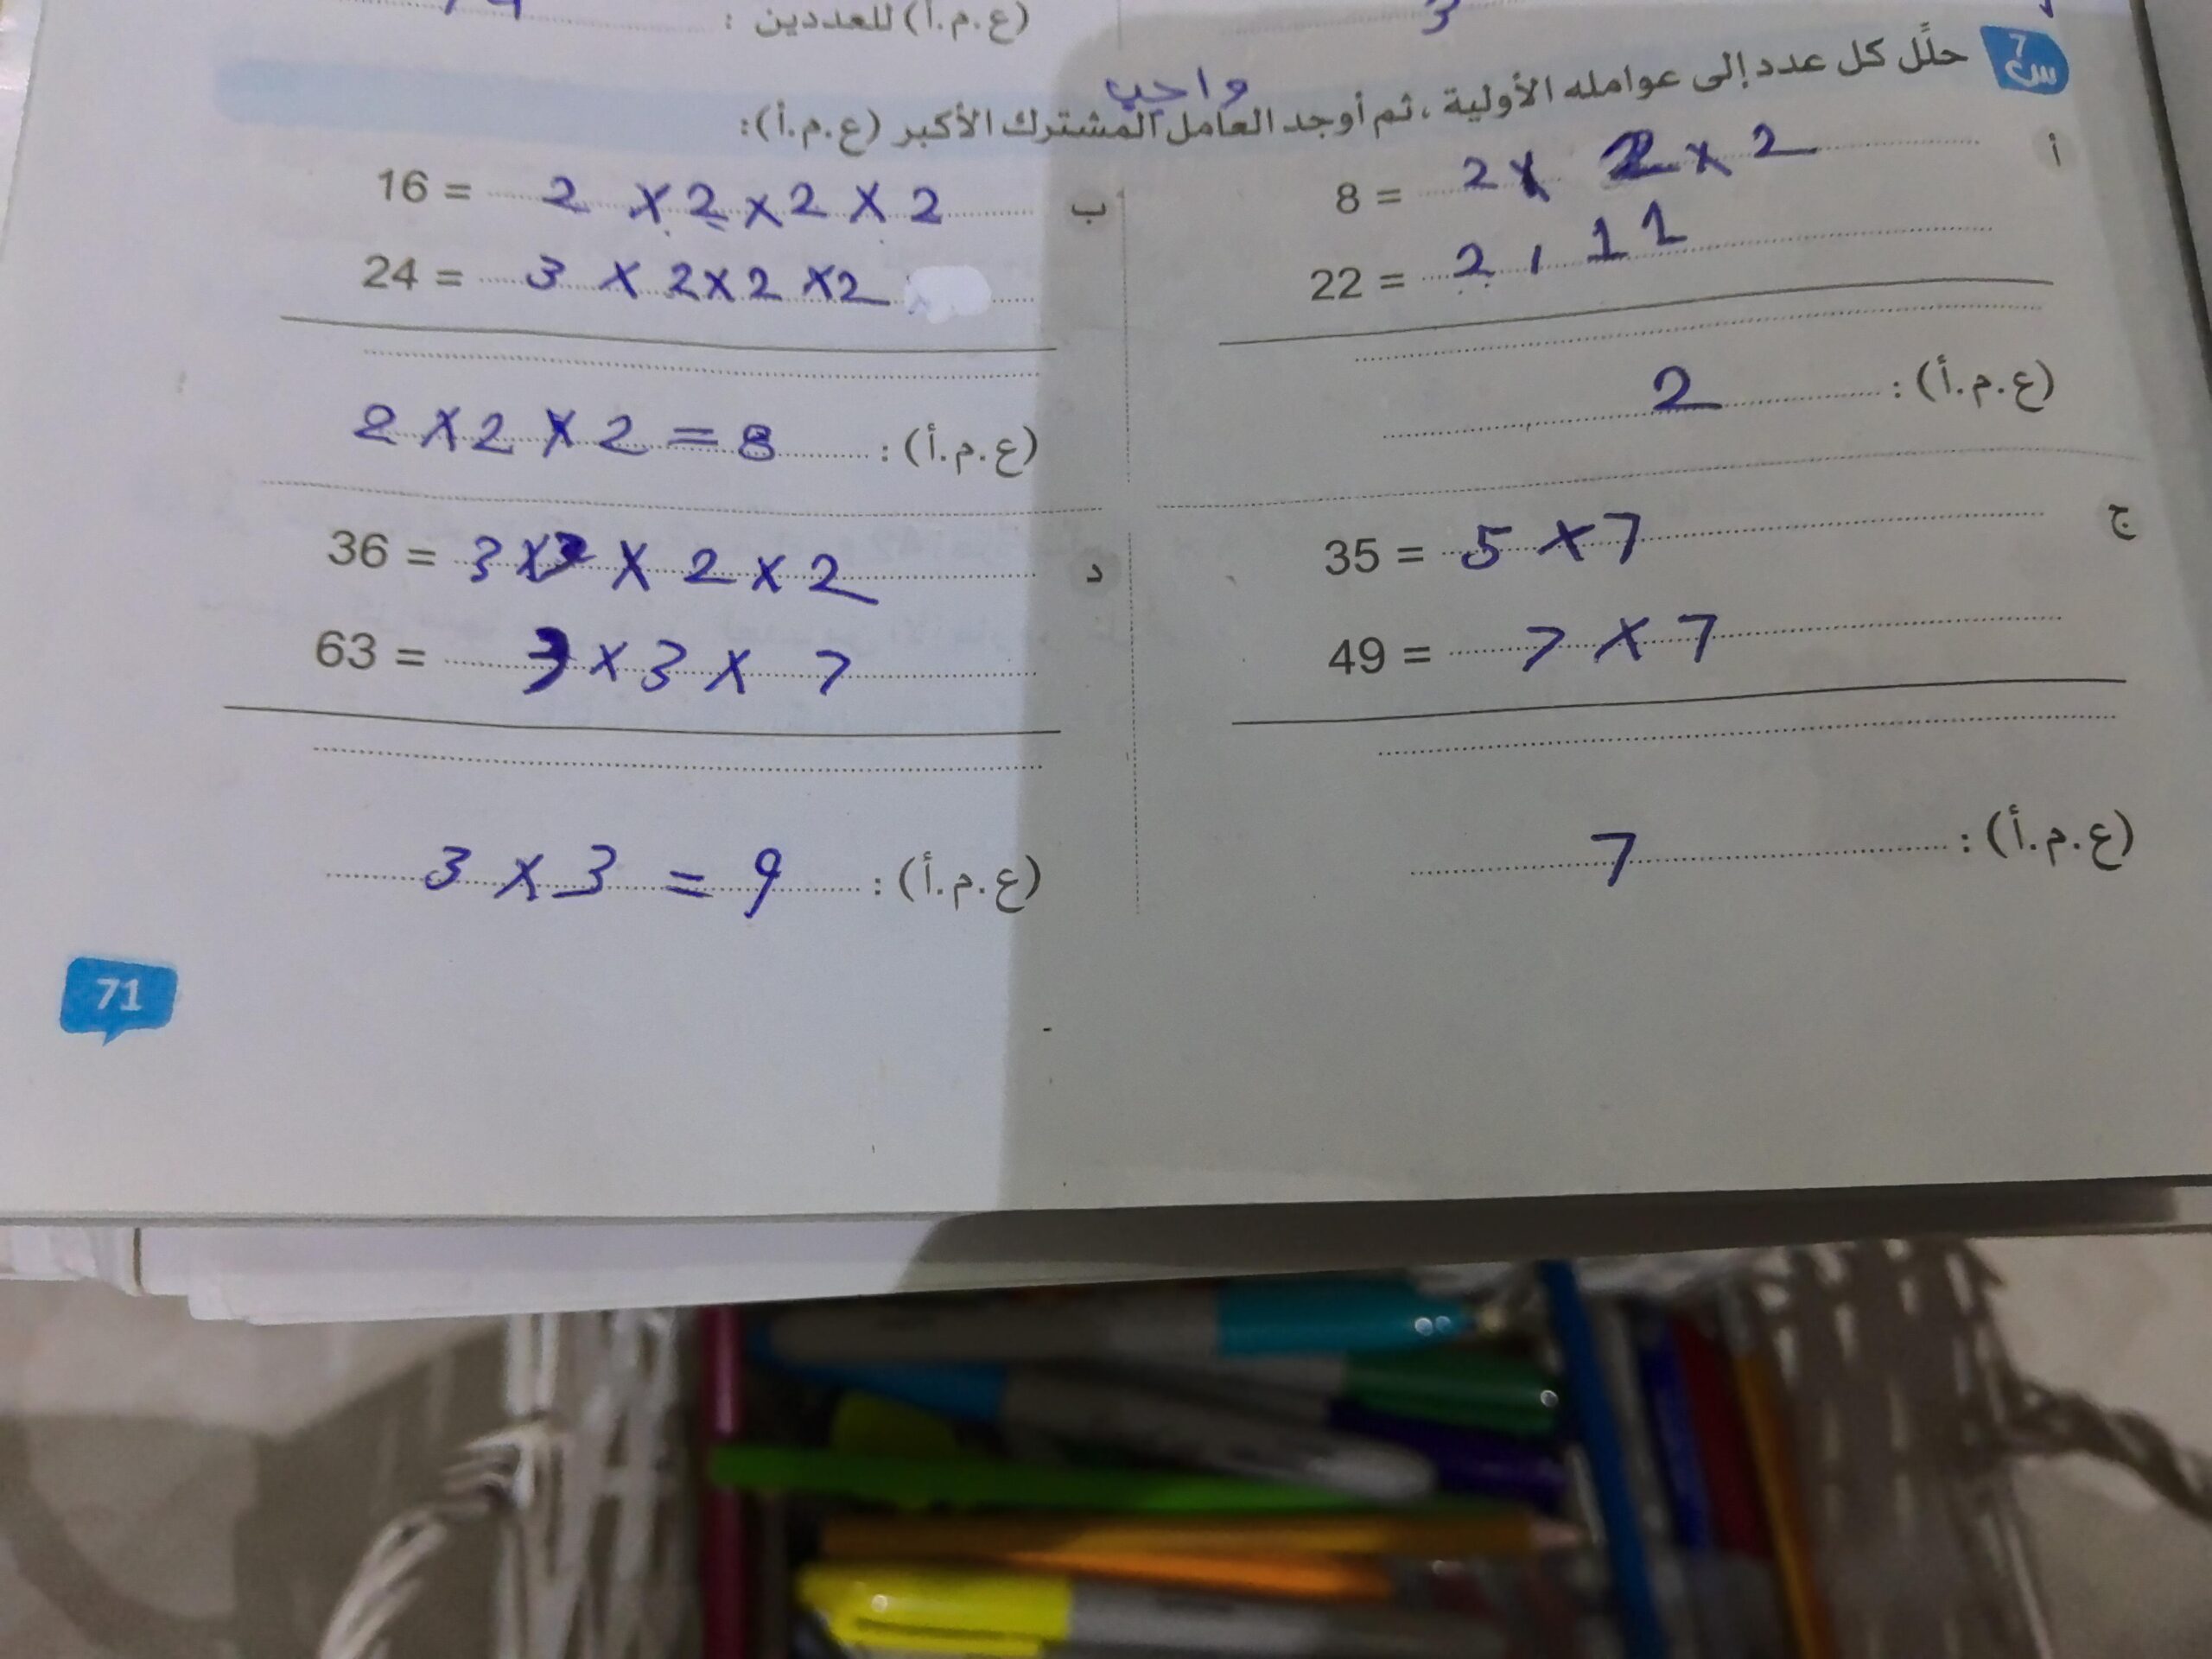 (ع.م.أ) للعددين :
3
س7 حلِّل كل عدد إلى عوامله الأولية ، ثم أوجد العامل المشترك الأكبر (ع.م.أ):
واجب
أ
8 = 2 x 2 x 2
22 = 2 , 11
(ع.م.أ) : 2
ب
16 = 2 x 2 x 2 x 2
24 = 3 x 2 x 2 x 2
(ع.م.أ) : 2 x 2 x 2 = 8
ج
35 = 5 x 7
49 = 7 x 7
(ع.م.أ) : 7
د
36 = 3 x 3 x 2 x 2
63 = 3 x 3 x 7
(ع.م.أ) : 3 x 3 = 9
71